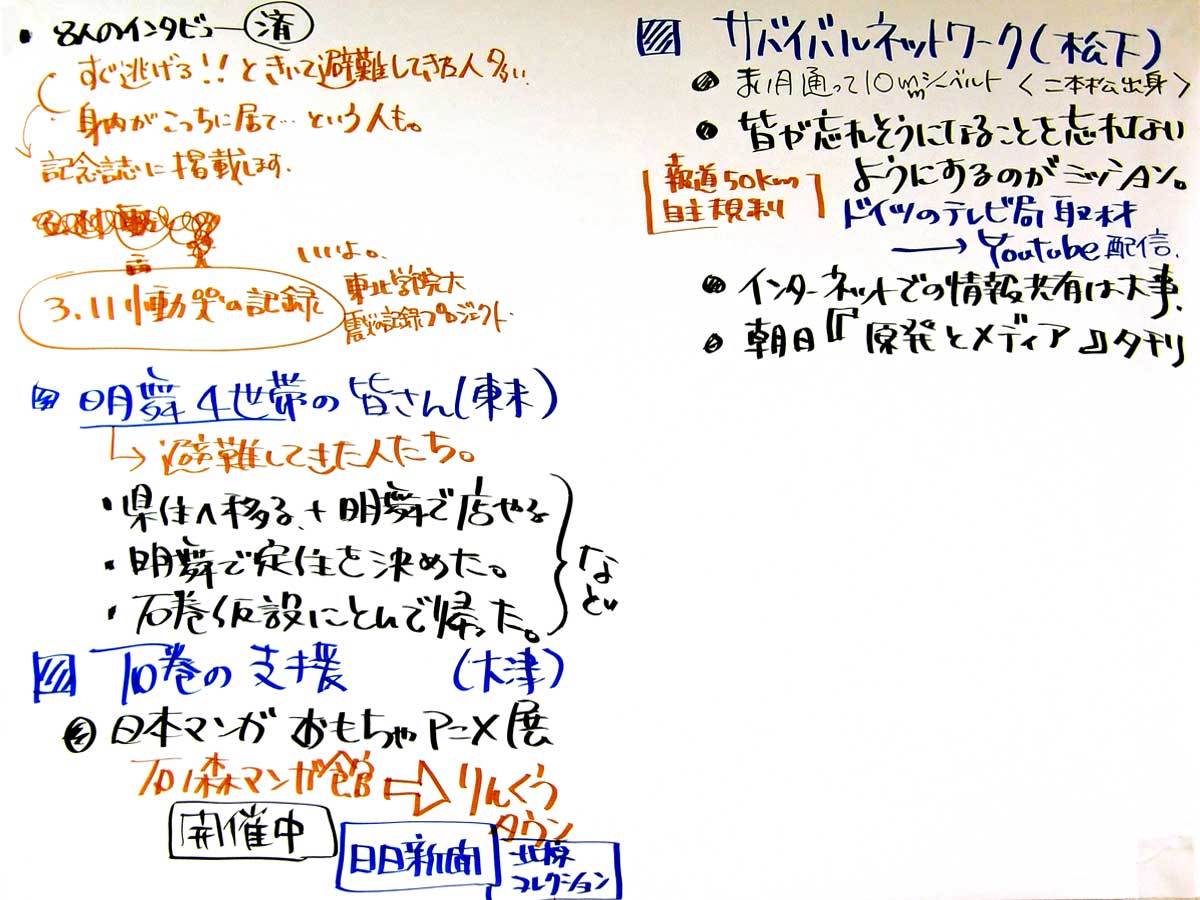 ・8人のインタビュー 済
すぐ逃げろ!!ときいて避難してきた人多い
身内がこっちに居て…という人も。
記念誌に掲載します.
いいよ。
3.11慟哭の記録
東北学院大
震災の記録プロジェクト.
明舞4世帯の皆さん(東末)
→避難してきた人たち。
・県住へ移る、+明舞で店やる
・明舞で定住を決めた。
・石巻仮設にとんで帰った。
など
石巻の支援 (大津)
日本マンガおもちゃアニメ展
石ノ森マンガ館⇨りんくう
タウン
開催中
日日新聞
北原
コレクション
サバイバルネットワーク(松下)
まい月通って10mmシーベルト〈二本松出身〉
皆が忘れそうになることを忘れない
ようにするのがミッション。
報道50km
自主規制
ドイツのテレビ局取材
→Youtube配信.
インターネットでの情報共有は大事.
朝日『原発とメディア』夕刊